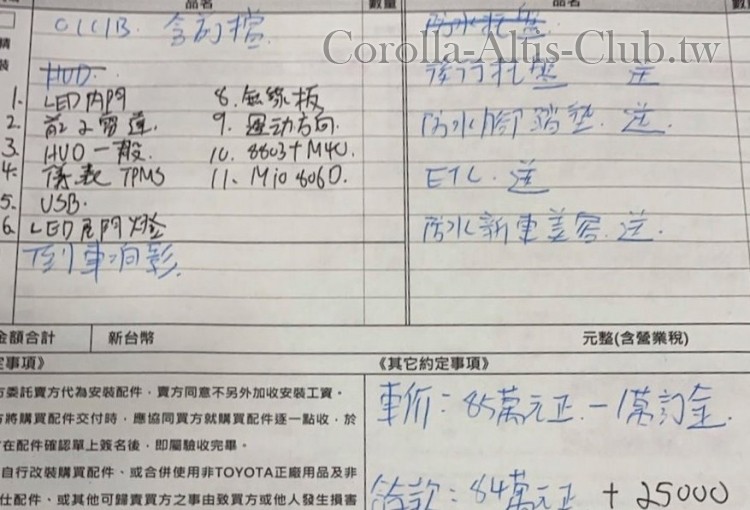 品名
數量
品名
含前檔
Corolla-Altis-Club.tw
防水托盤
HUD
後行托盤 送
1. LED內門 8. 無線板
2. 前2窗蓮. 9. 運动方向.
防水腳踏墊. 送.
3. HUD一般. 10. 8803+M40.
4. 儀表 TPMS 11. Mio 806D.
ETC. 送
5. USB.
6. LED尾門燈
防水新車美容. 送.
倒車顯影.
金額合計 新台幣 元整(含營業稅)
定事項》
《其它約定事項》
方委託賣方代為安裝配件，賣方同意不另外加收安裝工資。
車价：85萬元正－1萬訂金
方將購買配件交付時，應協同買方就購買配件逐一點收，於
在配件確認單上簽名後，即屬驗收完畢。
自行改裝購買配件、或合併使用非TOYOTA正廠用品及非
餘款：84萬元正 + 25000
仕配件、或其他可歸責買方之事由致買方或他人發生損害